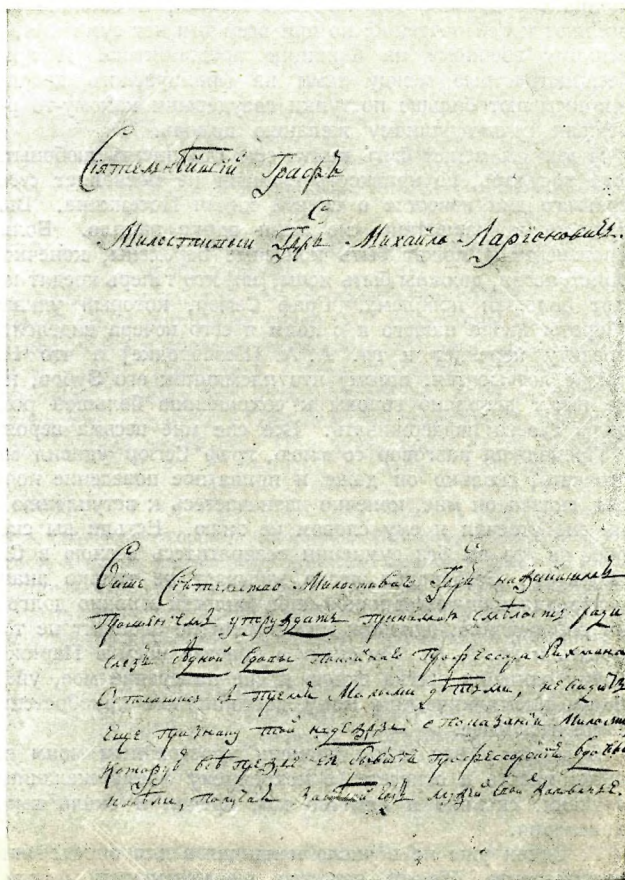 Сіятельнѣйшій Графъ
Милостивый Гдрь Михайло Ларіоновичъ.
Ваше Сіятельство Милостиваго Гдря наизпокорнѣйшимъ
прошеніемъ утруждать принимаю смѣлость ради
слезъ бѣдной вдовы покойнаго профессора Рихмана.
Оставшись съ тремя малыми дѣтьми, не видитъ
еще признаку той надежды о показаніи милости
которую всѣ прежде ея бывшія профессорскія вдовы
имѣли, получая за мужей своихъ жалованье.